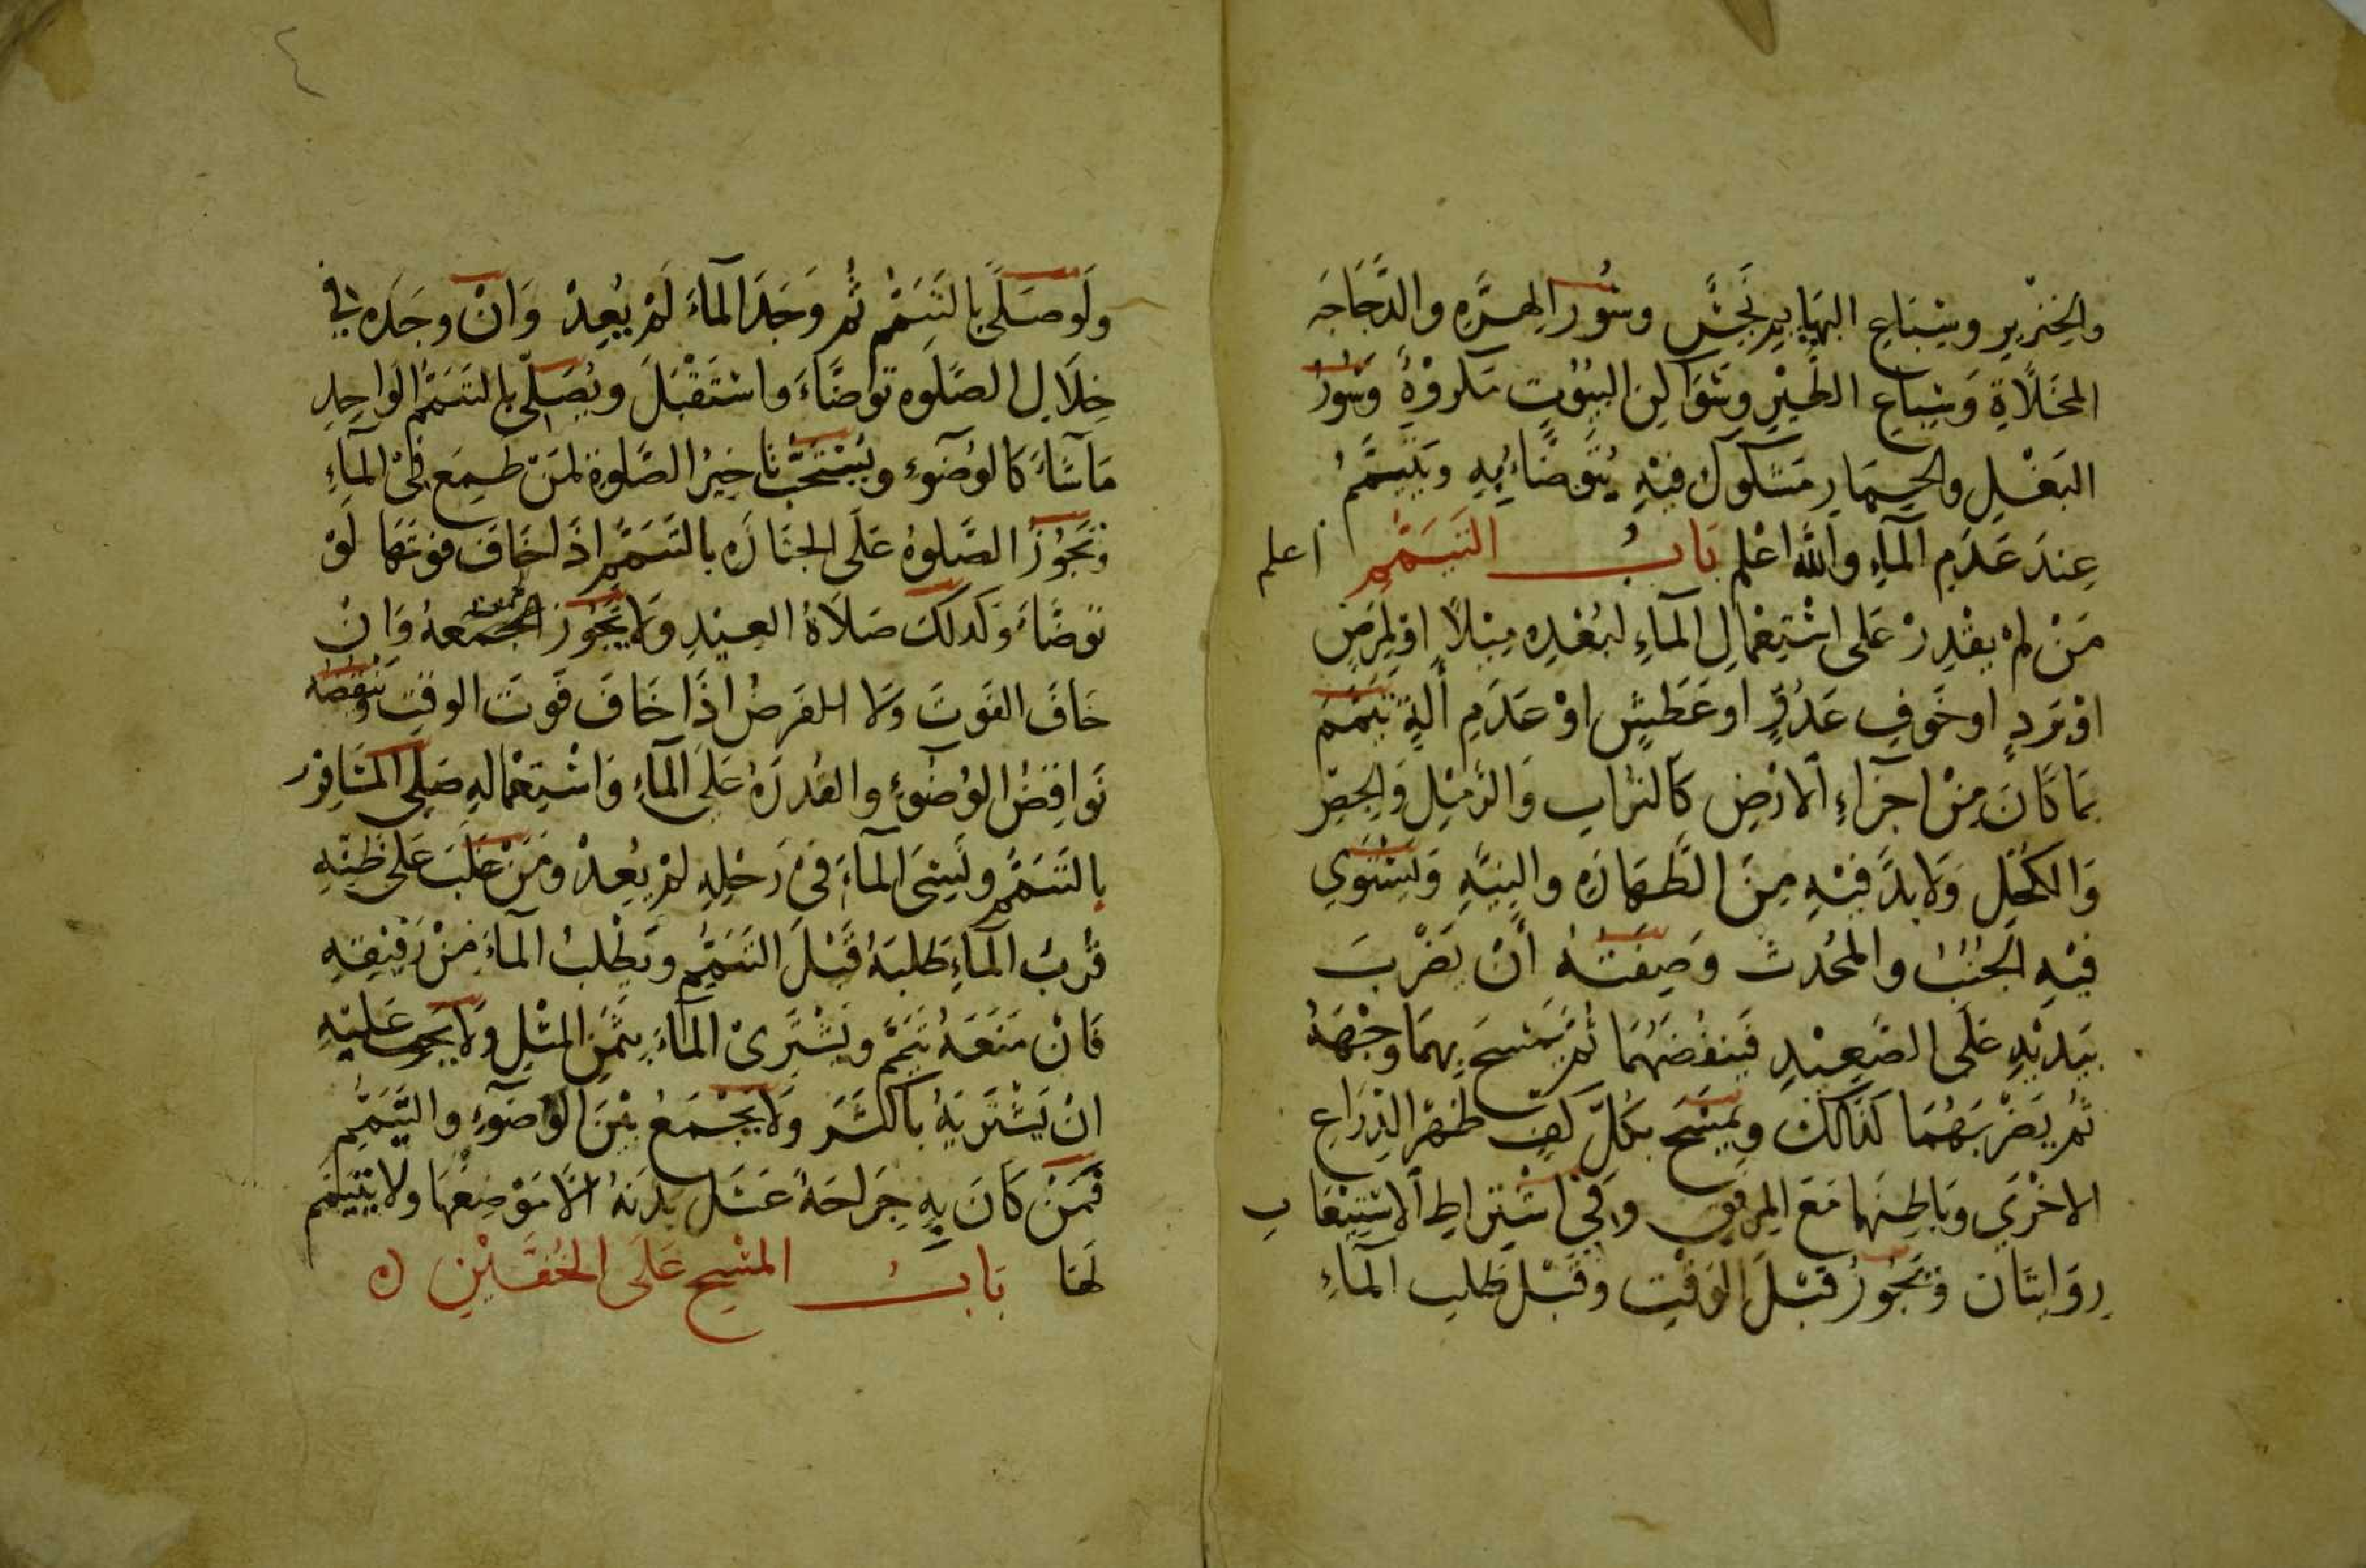 والخِنْزِيرِ وسِبَاعِ البهَايِمِ نَجَسٌ وسُورُ الهِرَّهِ والدَّجَاجَه
المخَلَّاةِ وَسِبَاعِ الطَّيْرِ وسَوَاكِنِ البيُوتِ مَكرُوْهٌ وَسُورُ
البَغْلِ والحِمَارِ مَشكوكٌ فيْهِ يُتَوضَّاءُ بِهِ ويَتَيَمَّمُ
عِندَ عَدَمِ المآءِ واللهُ اعْلم بَابُ التَيَمُّمِ اعلم
مَنْ لمْ يقْدِرْ عَلى اسْتِعْمالِ المآءِ لبُعْدِه مِيْلاً اوْلِمَرَضٍ
اوْ بَردٍ او خَوفِ عَدُوٍّ او عَطَشٍ اوْ عَدَمِ ألَةٍ تَيَمَّمَ
بمَا كَانَ مِنْ اجزَآءِ الارْضِ كَالترُابِ وَالرَّمْلِ وَالجِصِّ
وَالكُحْلِ وَلا بدَّ فيْهِ مِنَ الطَّهَارَهِ والنِيَّهِ وَيَسْتَوِي
فيْهِ الجُنُبُ والمُحْدِث وَصِفَتُهُ أنْ يَضْرِبَ
بيَدَيْهِ عَلَى الصَّعِيْدِ فَينفُضَهُمَا ثُمَّ يَمْسَحَ بِهمَا وجْهَهُ
ثُمَّ يَضْرِبَهُمَا كَذَالكَ ويمْسَحَ بكُلِّ كَفٍّ ظهْرَ الذِرَاعِ
الاخْرَي وَبَاطِنَهَا مَعَ المِرفَقِ وفي اشْتِرَاطِ الاسْتِيْعَاب
رِوَايتَان وَتجُوزُ قبْلَ الوَقْتِ وقَبْل طَلبِ المآءِ
ولَو صَلَّى بالتَيَمُّمِ ثُمَّ وَجَدَ المآءَ لَمْ يُعِدْ وَانْ وجَدَه في
خِلَالِ الصَّلَوه توَاضَّاءَ واسْتَقْبَلَ ويُصَلِّي بالتَيَمُّمِ الوَاحِدِ
مَا شَاءَ كَالوُضوءِ ويُسْتَحَبُّ تَاخِيرُ الصَّلوة لمَنْ طَمِعَ في المآءِ
وَتَجُوْزُ الصَّلوهُ عَلَى الجنَازَه بالتَّيَمُّمِ اذَا خَافَ فوتهَا لَوْ
توضَّاءَ وَكَدلكَ صَلَاةُ العِيْدِ ولَا يَجُوز الجُمُعهُ وَانْ
خَافَ الفَوتَ وَلا الفَرضُ اذَا خَافَ فَوتَ الوقتِ وينقضه
نَوَاقِضُ الوُضوءِ والقُدرَهُ عَلَى المآءِ وَاسْتِعْمالِهِ صَلى المسَافِرُ
بالتَيَمُّمِ ونَسِيَ المآءَ في رَحْلِهِ لمْ يُعِدْ ومَنْ غلَبَ عَلى ظَنِّهِ
قُربُ المآءِ طَلبَهُ قَبْلَ التَيَمُّمِ ويَطْلبُ المآءَ مِنْ رَفيْقِهِ
فَانْ مَنَعَهُ تَيَمَّمَ ويَشْتَرِىْ المآءَ بثمَنِ المثْلِ ولَا يَجبُ عَليْهِ
انْ يَشْتَريَهُ باكثَرَ وَلا يَجْمَعُ بَيْنَ الوُضوءِ والتَّيَمُّمِ
فمَنْ كَانَ بهِ جِرَاحَهٌ غسَلَ بدَنهُ الَّا مَوْضِعَهَا ولا يَتَيَمَّم
لهَا بَابُ المسْحِ عَلَى الخُفَّيْنِ ه